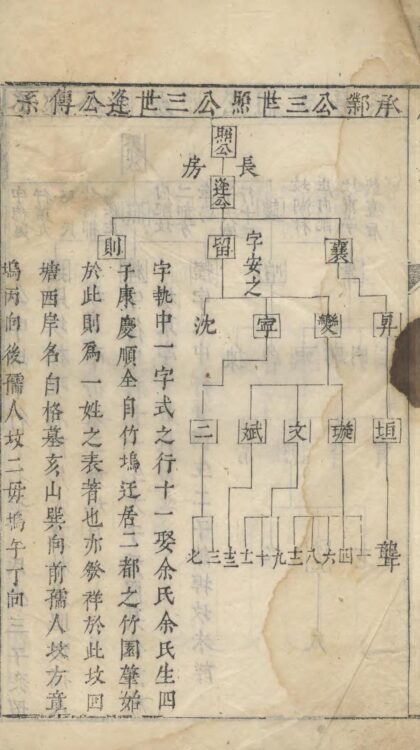 承鄴公三世照公三世逢公傳系
照公
長房
逢公
襄
留
字安之
則
昇
變
寧
沈
垣
璇
文
斌
二
聾
十四六八十二九十十一十三三七
字軌中一字式之行十一娶余氏余氏生四
子康慶順全自竹塢迁居二都之竹園肇始
於此則爲一姓之表著也亦發祥於此坟囙
塘西岸名白格墓亥山巽向前孺人坟方章
塢丙向後孺人坟二毋塢午丁向